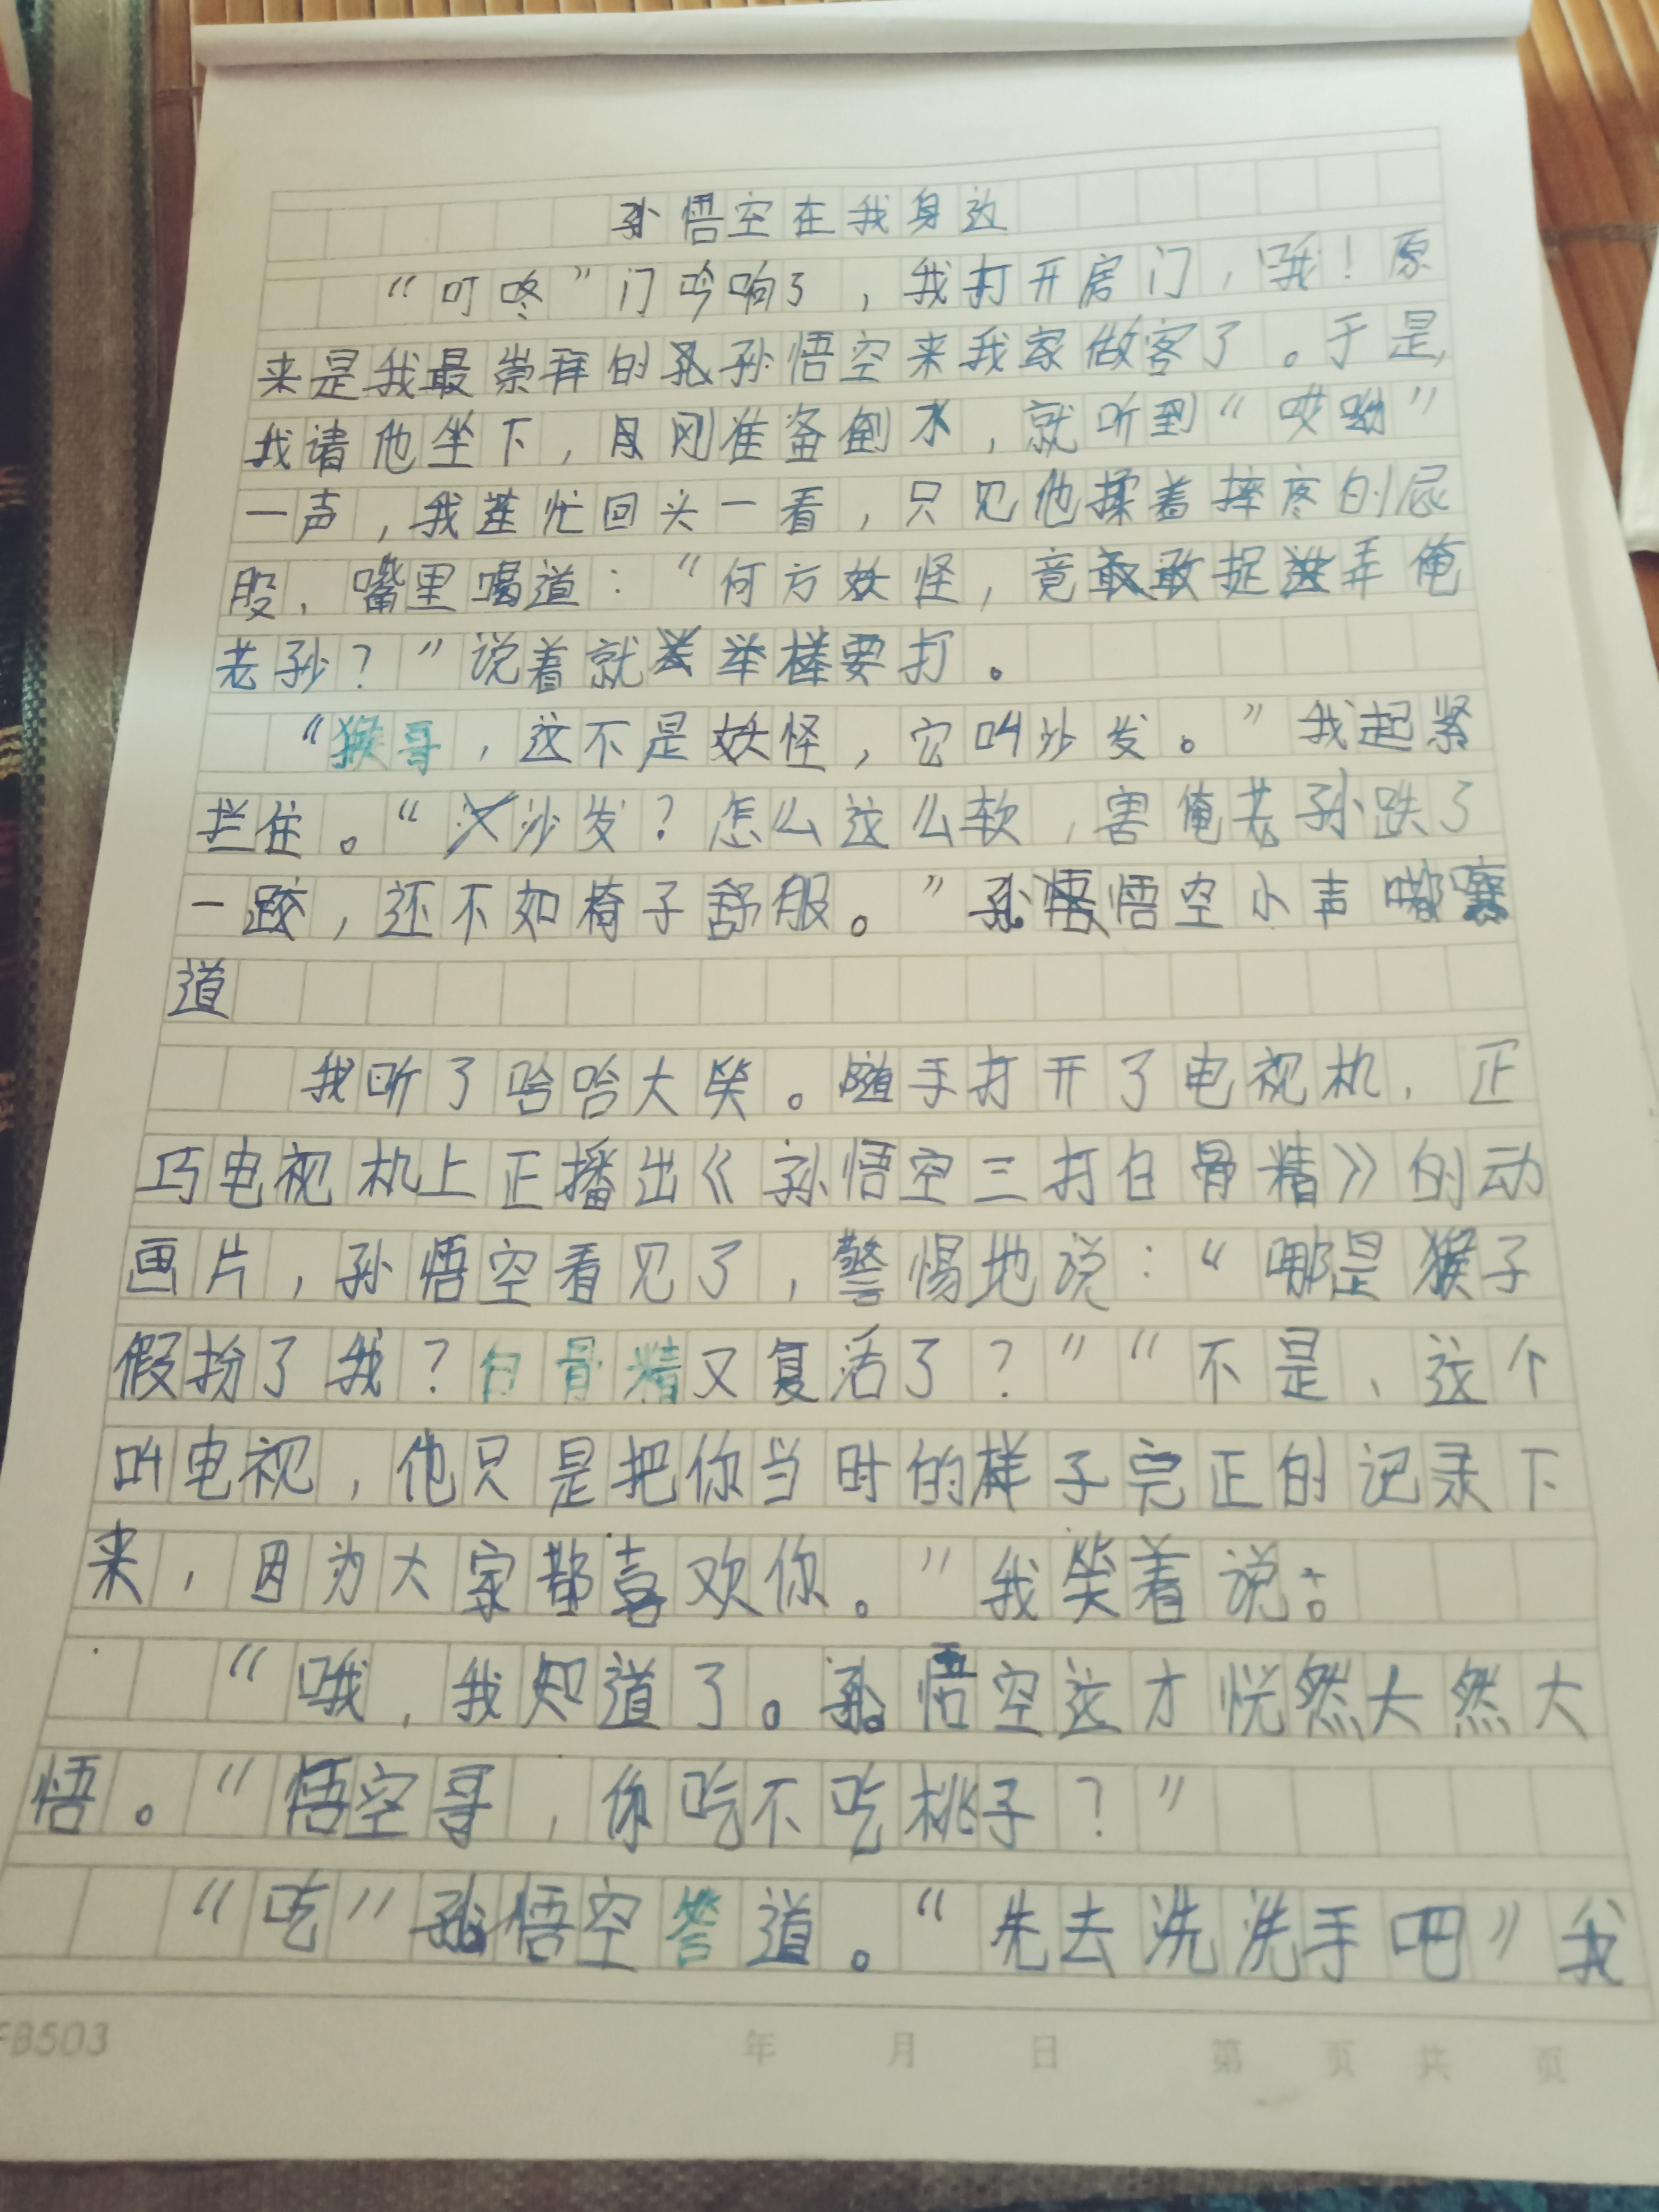 孙悟空在我身边
“叮咚”门吟响了，我打开房门，哦！原
来是我最崇拜的孙悟空来我家做客了。于是，
我请他坐下，刚准备倒水，就听到“哎呦”
一声，我连忙回头一看，只见他揉着摔疼的屁
股，嘴里喝道：“何方妖怪，竟敢捉弄俺
老孙？”说着就举棒要打。
“猴哥，这不是妖怪，它叫沙发。”我起紧
拦住。“沙发？怎么这么软，害俺老孙跌了
一跤，还不如椅子舒服。”孙悟空小声嘟囔
道
我听了哈哈大笑。随手打开了电视机，正
巧电视机上正播出《孙悟空三打白骨精》的动
画片，孙悟空看见了，警惕地说：“哪是猴子
假扮了我？白骨精又复活了？”“不是、这个
叫电视，他只是把你当时的样子完正的记录下
来，因为大家都喜欢你。”我笑着说：
“哦，我知道了。孙悟空这才恍然大然大
悟。“悟空哥，你吃不吃桃子？”
“吃”孙悟空答道。“先去洗洗手吧”我
FB503
年 月 日 第 页 共 页